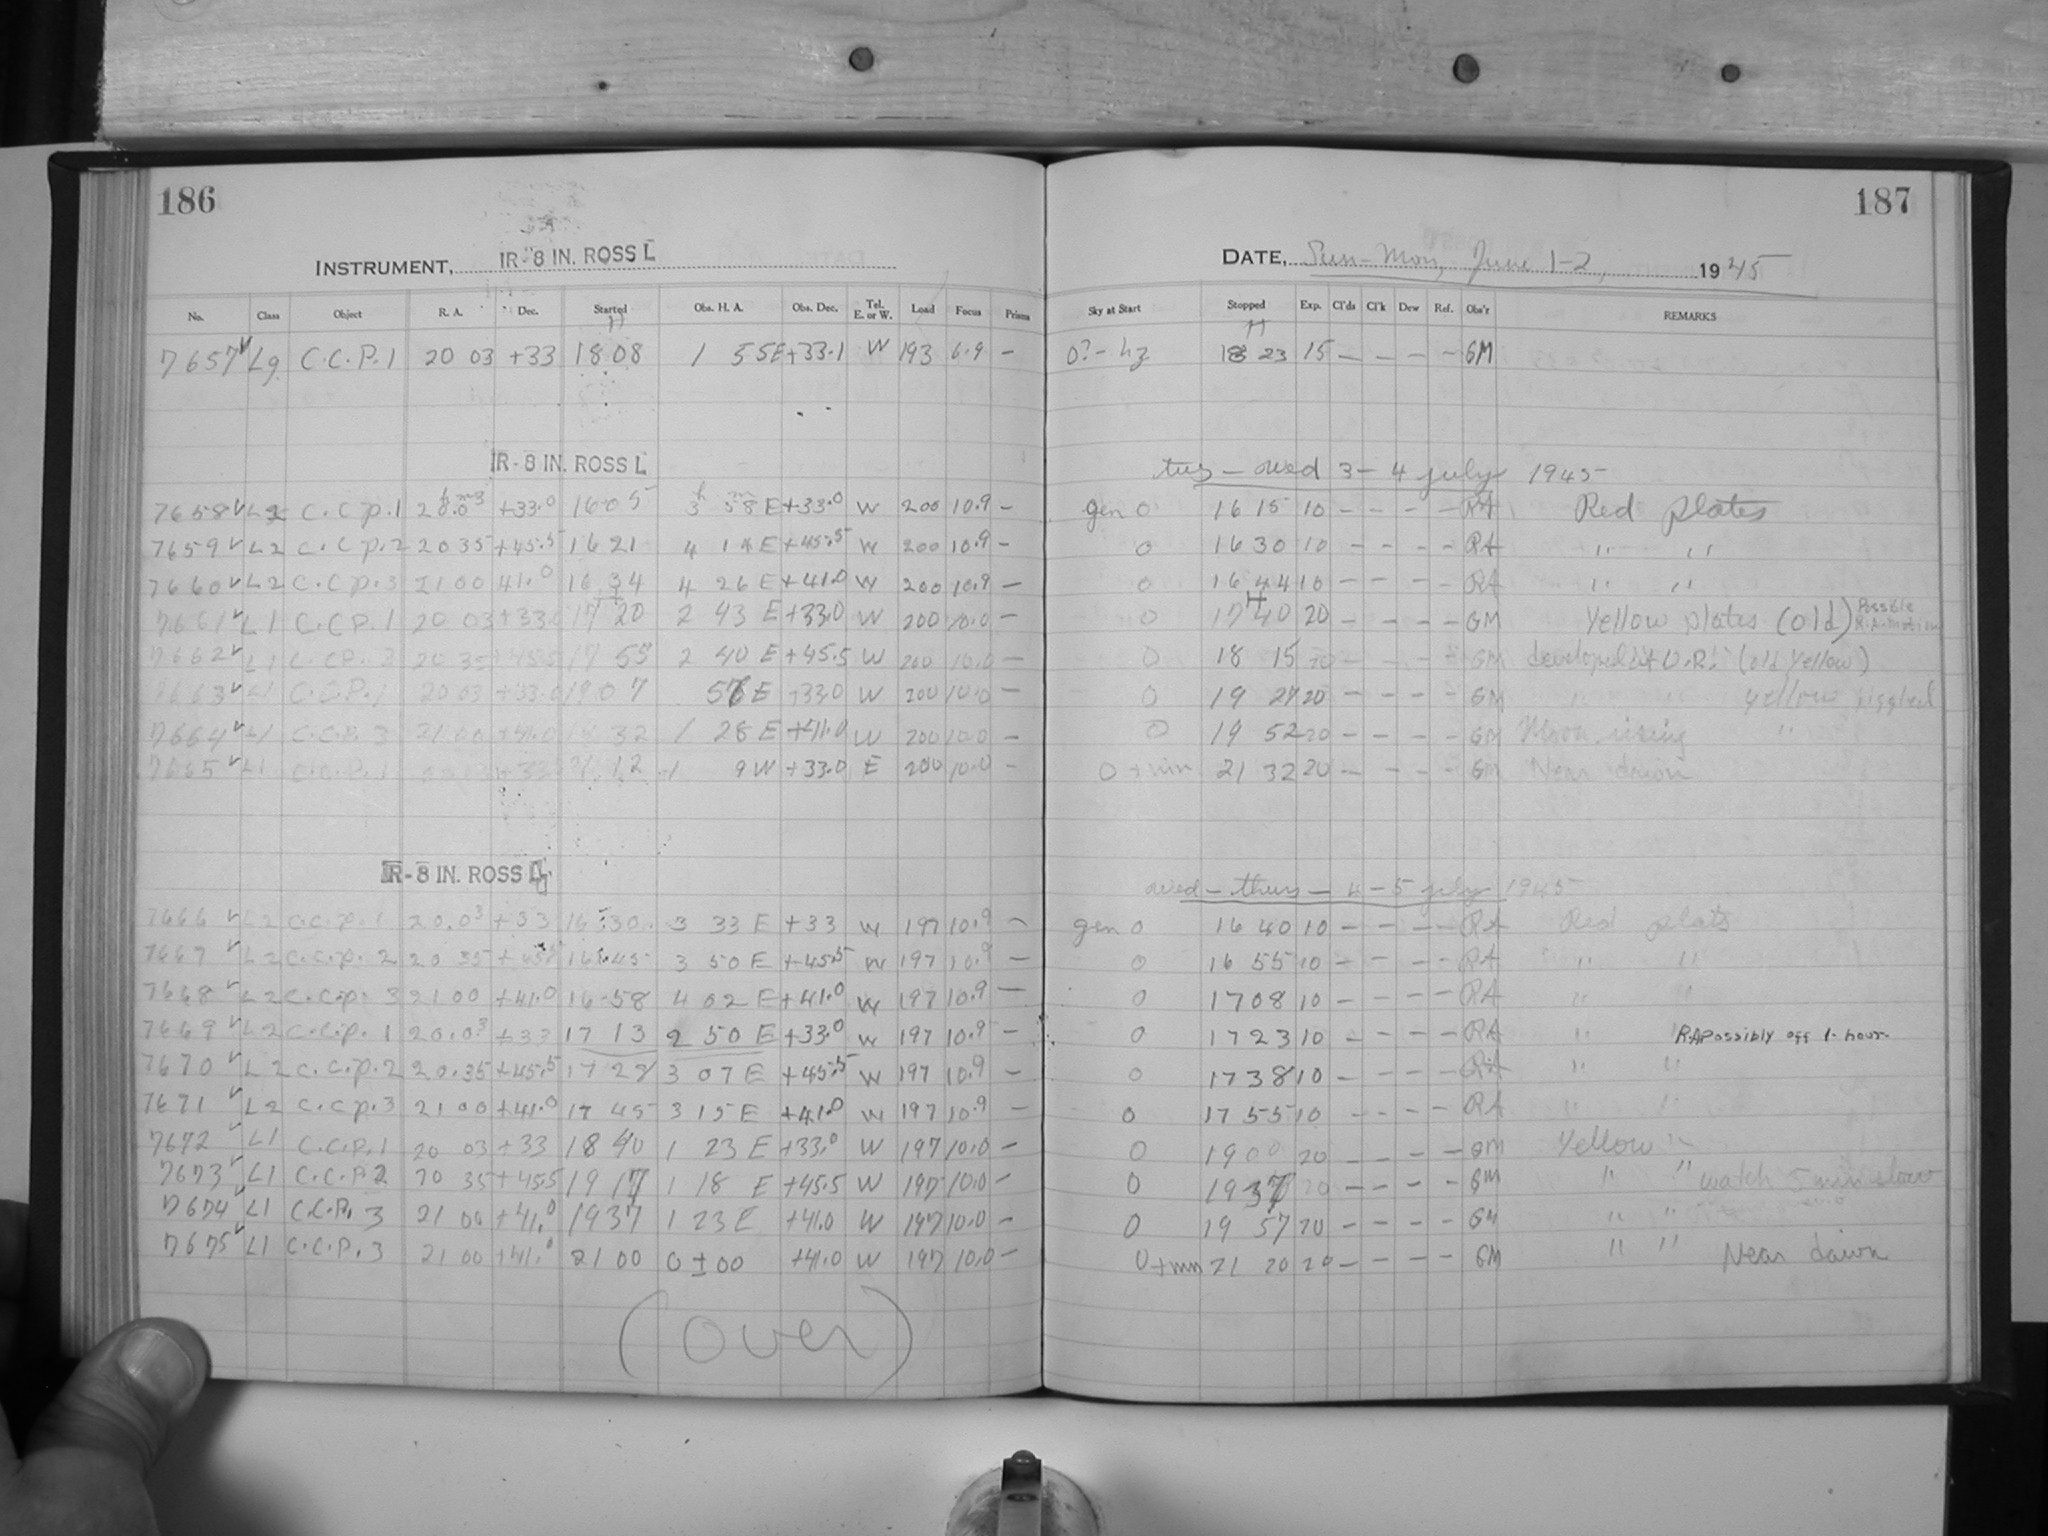 186
187
INSTRUMENT, IR-8 IN. ROSS L
DATE, Sun-Mon, June 1-2, 1945
No. Class Object R. A. Dec. Started Obs. H. A. Obs. Dec. Tel. E. or W. Load Focus Prisms Sky at Start Stopped Exp. Cl'ds Cl'k Dew Ref. Obs'r REMARKS
7657 √ Lg C.C.P.1 20 03 +33 18 08 1 55E +33.1 W 193 6.9 — 0?-hz 18 23 15 — — — — GM
IR-8 IN. ROSS L
tues - wed 3-4 july 1945
7658 √ L2 C.C.P.1 20.03 +33.0 16 05 3 58 E +33.0 W 200 10.9 — gen 0 16 15 10 — — — — RA Red plates
7659 √ L2 C.C.P.2 20 35 +45.5 16 21 4 14 E +45.5 W 200 10.9 — 0 16 30 10 — — — — RA " "
7660 √ L2 C.C.P.3 21 00 41.0 16 34 4 26 E +41.0 W 200 10.9 — 0 16 44 10 — — — — RA " "
7661 √ L1 C.C.P.1 20 03 +33.0 17 20 2 43 E +33.0 W 200 10.0 — 0 17 40 20 — — — — GM Yellow plates (old) Possible R.A. motion
7662 √ L1 C.C.P.2 20 35 +45.5 17 55 2 40 E +45.5 W 200 10.0 — 0 18 15 20 — — — — GM developed at O.R. (old yellow)
7663 √ L1 C.C.P.1 20 03 +33.0 19 07 E +33.0 W 200 10.0 — 0 19 27 20 — — — — GM " " yellow jiggled
7664 √ L1 C.C.P.3 21 00 +41.0 32 1 28 E +41.0 W 200 10.0 — 0 19 52 20 — — — — GM Moon rising "
7665 √ L1 C.C.P.1 +33 21 12 1 9 W +33.0 E 200 10.0 — 0+mn 21 32 20 — — — — GM Near dawn
IR-8 IN. ROSS L
wed - thurs - 4-5 july 1945
7666 √ L2 C.C.P.1 20.03 +33 16 30 3 33 E +33 W 197 10.9 — gen 0 16 40 10 — — — — RA Red plats
7667 √ L2 C.C.P.2 20 35 +45.5 16 45 3 50 E +45.5 W 197 10.9 — 0 16 55 10 — — — — RA " "
7668 √ L2 C.C.P.3 21 00 +41.0 16 58 4 02 E +41.0 W 197 10.9 — 0 17 08 10 — — — — RA " "
7669 √ L2 C.C.P.1 20.03 +33 17 13 2 50 E +33.0 W 197 10.9 — 0 17 23 10 — — — — RA " " RA Possibly off 1 hour
7670 √ L2 C.C.P.2 20.35 +45.5 17 28 3 07 E +45.5 W 197 10.9 — 0 17 38 10 — — — — RA " "
7671 √ L2 C.C.P.3 21 00 +41.0 17 45 3 15 E +41.0 W 197 10.9 — 0 17 55 10 — — — — RA " "
7672 √ L1 C.C.P.1 20 03 +33 18 40 1 23 E +33.0 W 197 10.0 — 0 19 00 20 — — — — GM Yellow "
7673 √ L1 C.C.P.2 20 35 +45.5 19 17 1 18 E +45.5 W 197 10.0 — 0 19 37 20 — — — — GM " " watch 5 min slow
7674 √ L1 C.C.P.3 21 00 +41.0 19 37 1 23 E +41.0 W 197 10.0 — 0 19 57 20 — — — — GM " "
7675 √ L1 C.C.P.3 21 00 +41.0 21 00 0 ± 00 +41.0 W 197 10.0 — 0+mn 21 20 20 — — — — GM " " Near dawn
(over)